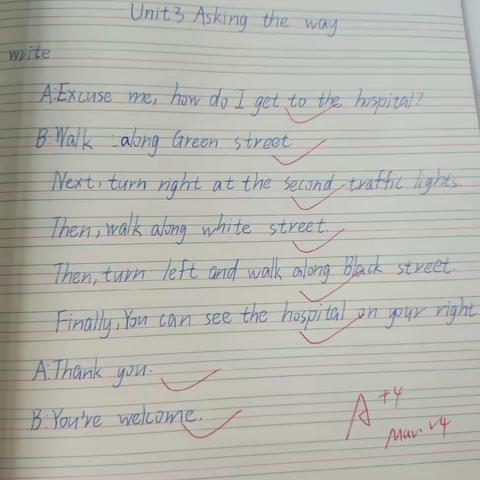 Unit 3 Asking the way
write
A: Excuse me, how do I get to the hospital?
B: Walk along Green street
Next, turn right at the second traffic lights.
Then, walk along white street.
Then, turn left and walk along Black street.
Finally, You can see the hospital on your right
A: Thank you.
B: You're welcome.
A+4